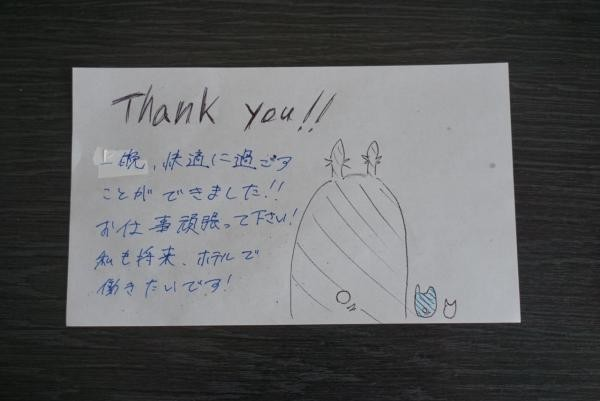 Thank you!!
一晩、快適に過ごす
ことができました!!
お仕事頑張って下さい!
私も将来、ホテルで
働きたいです!